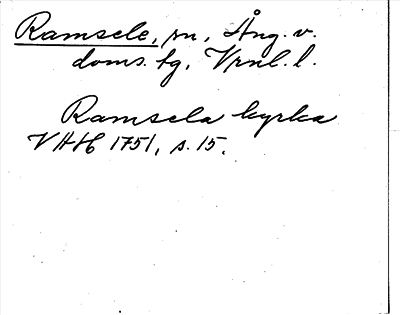 Ramsele, sn, Ång. v.
doms. tg, Vrnl. l.
Ramsela kyrka
VHH 1751, s. 15.